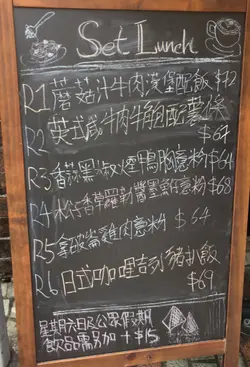 Set Lunch
R1 蘑菇汁牛肉漢堡配飯 $72
R2 英式咸牛肉牛角包配薯條
$64
R3 香蒜黑椒煙鴨胸意粉 $64
R4 香草羅勒蟹墨魚意粉 $68
R5 拿破崙雞肉意粉 $64
R6 日式咖哩吉列豬扒飯
$69
星期六日及公眾假期
飲品需另加 +$15